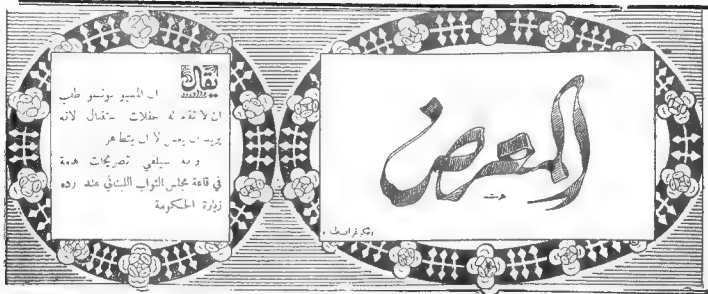 المعرض
يقال
ان المسيو بونسو طلب
ان لا تقام له حفلات استقبال لانه
يريد ان يعمل لا ان يتظاهر
و انه سيلقي تصريحات هامة
في قاعة مجلس النواب اللبناني عند رده
زيارة الحكومة